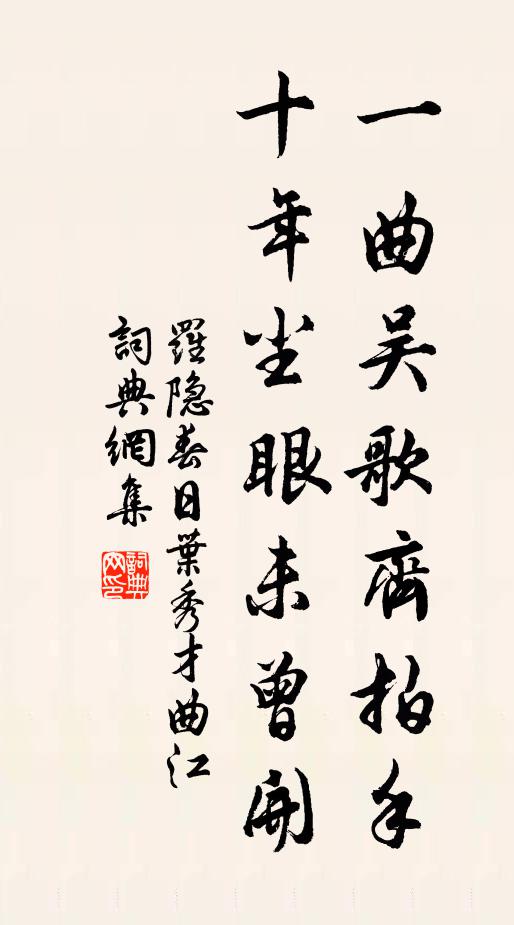 一曲吴歌齊拍手
十年尘眼未曾開
羅隐春日葉秀才曲江
詞典網集
詞典
网印